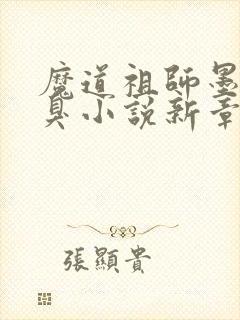 魔道祖師墨
臭小說新章
張顯貴